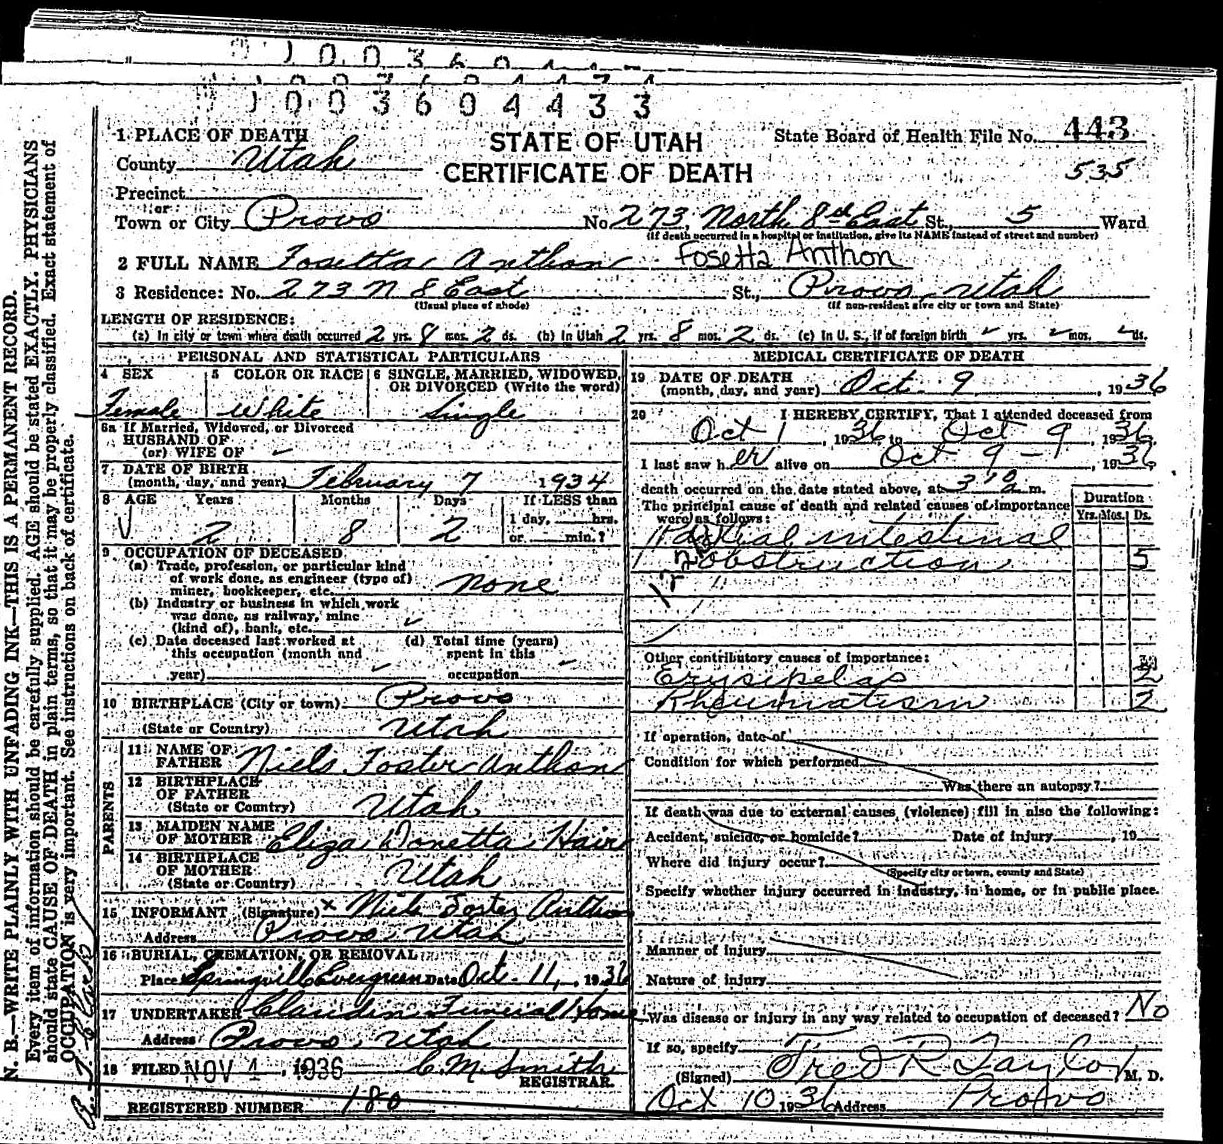 1003604433
1 PLACE OF DEATH
STATE OF UTAH
State Board of Health File No. 443
County Utah
CERTIFICATE OF DEATH
535
Precinct
or
Town or City Provo No. 273 North 8th East St., 5 Ward
(If death occurred in a hospital or institution, give its NAME instead of street and number)
2 FULL NAME Fosetta Anthon Fosetta Anthon
3 Residence: No. 273 N 8 East St., Provo, Utah
(Usual place of abode) (If non-resident give city or town and State)
LENGTH OF RESIDENCE:
(a) In city or town where death occurred 2 yrs. 8 mos. 2 ds. (b) In Utah 2 yrs. 8 mos. 2 ds. (c) In U. S., if of foreign birth yrs. mos. ds.
PERSONAL AND STATISTICAL PARTICULARS
4 SEX 5 COLOR OR RACE 6 SINGLE, MARRIED, WIDOWED,
OR DIVORCED (Write the word)
Female White Single
6a If Married, Widowed, or Divorced
HUSBAND OF
(or) WIFE OF
7 DATE OF BIRTH
(month, day, and year) February 7 1934
8 AGE Years Months Days If LESS than
1 day, hrs.
2 8 2 or min.?
9 OCCUPATION OF DECEASED
(a) Trade, profession, or particular kind
of work done, as engineer (type of)
miner, bookkeeper, etc. none
(b) Industry or business in which work
was done, as railway, mine
(kind of), bank, etc.
(c) Date deceased last worked at (d) Total time (years)
this occupation (month and spent in this
year) occupation
10 BIRTHPLACE (City or town) Provo
(State or Country) Utah
PARENTS
11 NAME OF
FATHER Niels Foster Anthon
12 BIRTHPLACE
OF FATHER
(State or Country) Utah
13 MAIDEN NAME
OF MOTHER Eliza Donetta Hair
14 BIRTHPLACE
OF MOTHER
(State or Country) Utah
15 INFORMANT (Signature) x Niels Foster Anthon
Address Provo, Utah
16 BURIAL, CREMATION, OR REMOVAL
Place Springville Evergreen Date Oct. 11, 1936
17 UNDERTAKER Claudin Funeral Home
Address Provo, Utah
18 FILED NOV 4 1936 C. M. Smith
REGISTRAR.
REGISTERED NUMBER 180
MEDICAL CERTIFICATE OF DEATH
19 DATE OF DEATH
(month, day, and year) Oct. 9, 1936
20 I HEREBY CERTIFY, That I attended deceased from
Oct 1, 1936 to Oct 9, 1936
I last saw her alive on Oct 9 1936
death occurred on the date stated above, at m.
The principal cause of death and related causes of importance
were as follows:
Duration
Yrs. Mos. Ds.
Partial intestinal
obstruction 5
Other contributory causes of importance:
Erysipelas 2
Rheumatism 2
If operation, date of
Condition for which performed
Was there an autopsy?
If death was due to external causes (violence) fill in also the following:
Accident, suicide, or homicide? Date of injury 19
Where did injury occur?
(Specify city or town, county and State)
Specify whether injury occurred in industry, in home, or in public place.
Manner of injury
Nature of injury
Was disease or injury in any way related to occupation of deceased? No
If so, specify
(Signed) Fred R Taylor M. D.
Oct 10 1936 Address Provo
N. B.—WRITE PLAINLY WITH UNFADING INK—THIS IS A PERMANENT RECORD.
Every item of information should be carefully supplied. AGE should be stated EXACTLY. PHYSICIANS
should state CAUSE OF DEATH in plain terms, so that it may be properly classified. Exact statement of
OCCUPATION is very important. See instructions on back of certificate.